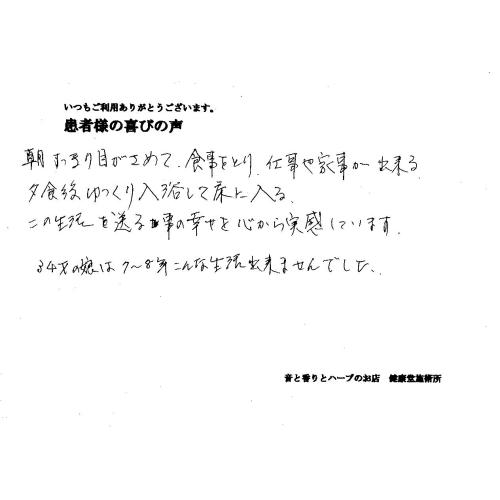 いつもご利用ありがとうございます。
患者様の喜びの声
朝すっきり目がさめて、食事をとり、仕事や家事が出来る
夕食後ゆっくり入浴して床に入る
この生活を送る事の幸せを心から実感しています。
34才の娘は7〜8年こんな生活出来ませんでした。
音と香りとハーブのお店 健康堂施術所